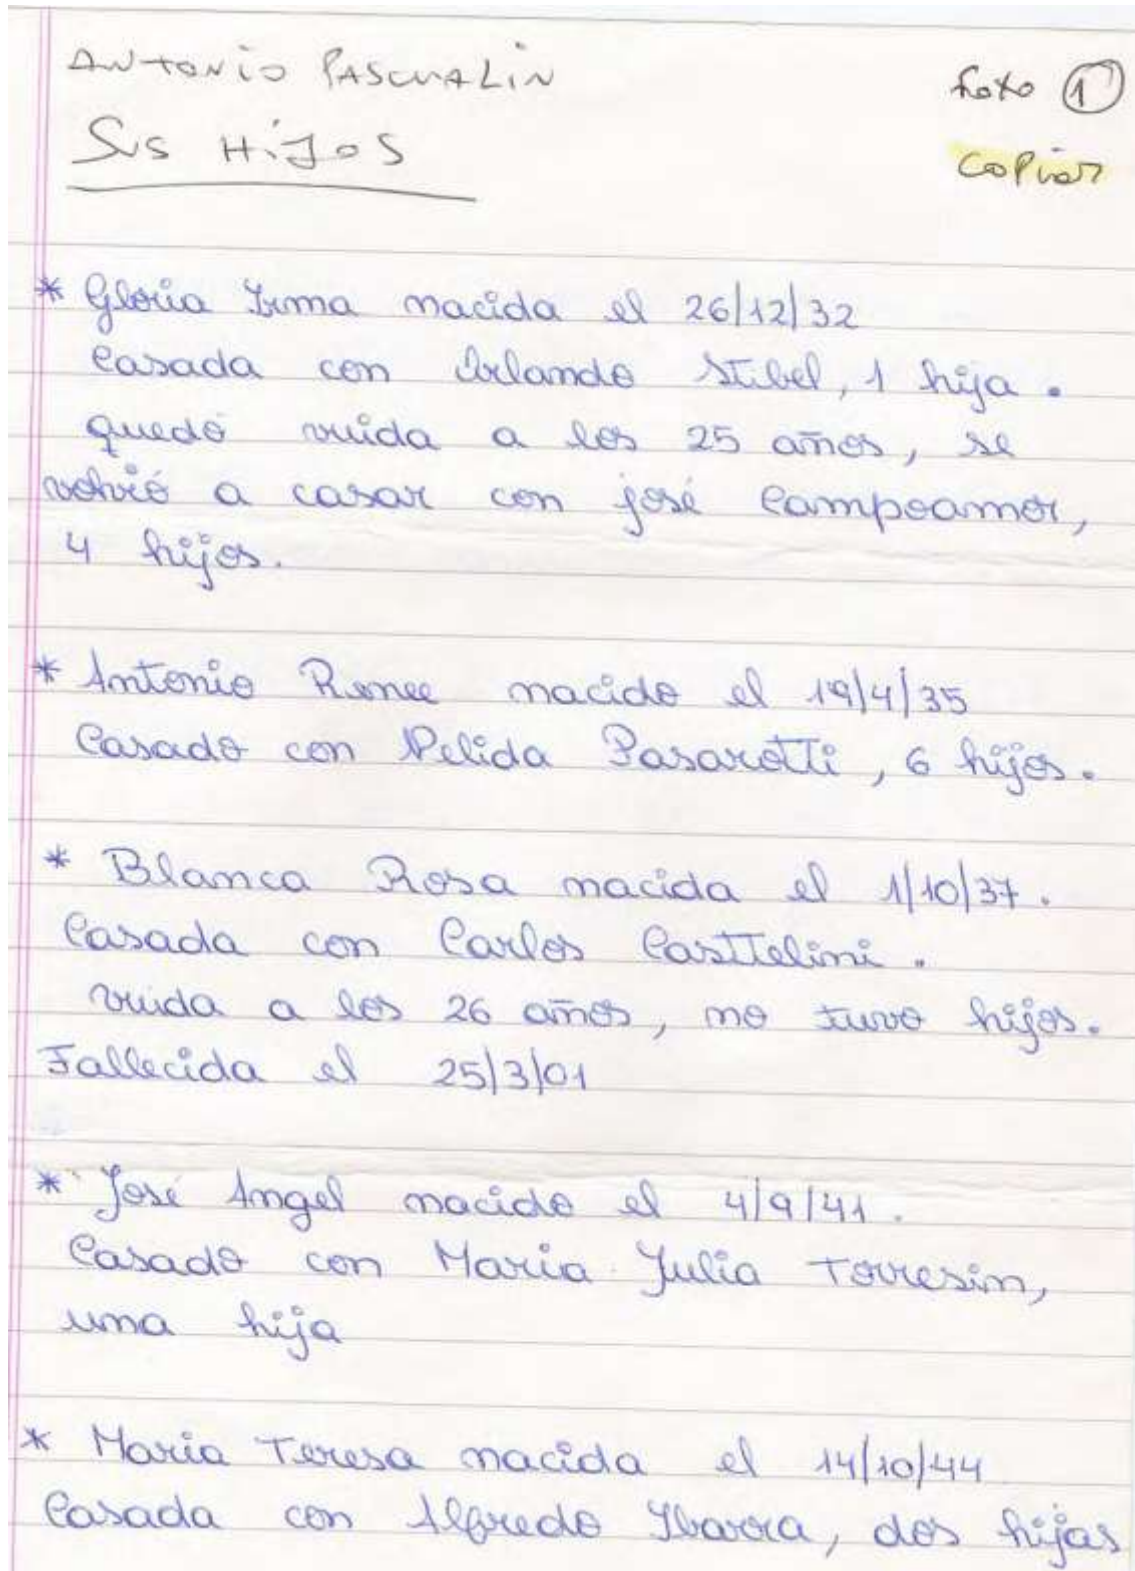 ANTONIO PASCUALIN
foto 1
SUS HIJOS
copiar
* Gloria Irma nacida el 26/12/32
Casada con Orlando Stibel, 1 hija.
quedó viuda a los 25 años, se
volvió a casar con josé Campoamor,
4 hijos.
* Antonio Renee nacido el 19/4/35
Casado con Nelida Pasarotti, 6 hijos.
* Blanca Rosa nacida el 1/10/37.
Casada con Carlos Casttelini.
viuda a los 26 años, no tuvo hijos.
Fallecida el 25/3/01
* José Angel nacido el 4/9/41.
Casado con Maria Julia Torresin,
una hija
* Maria Teresa nacida el 14/10/44
Casada con Alfredo Ybarra, dos hijas